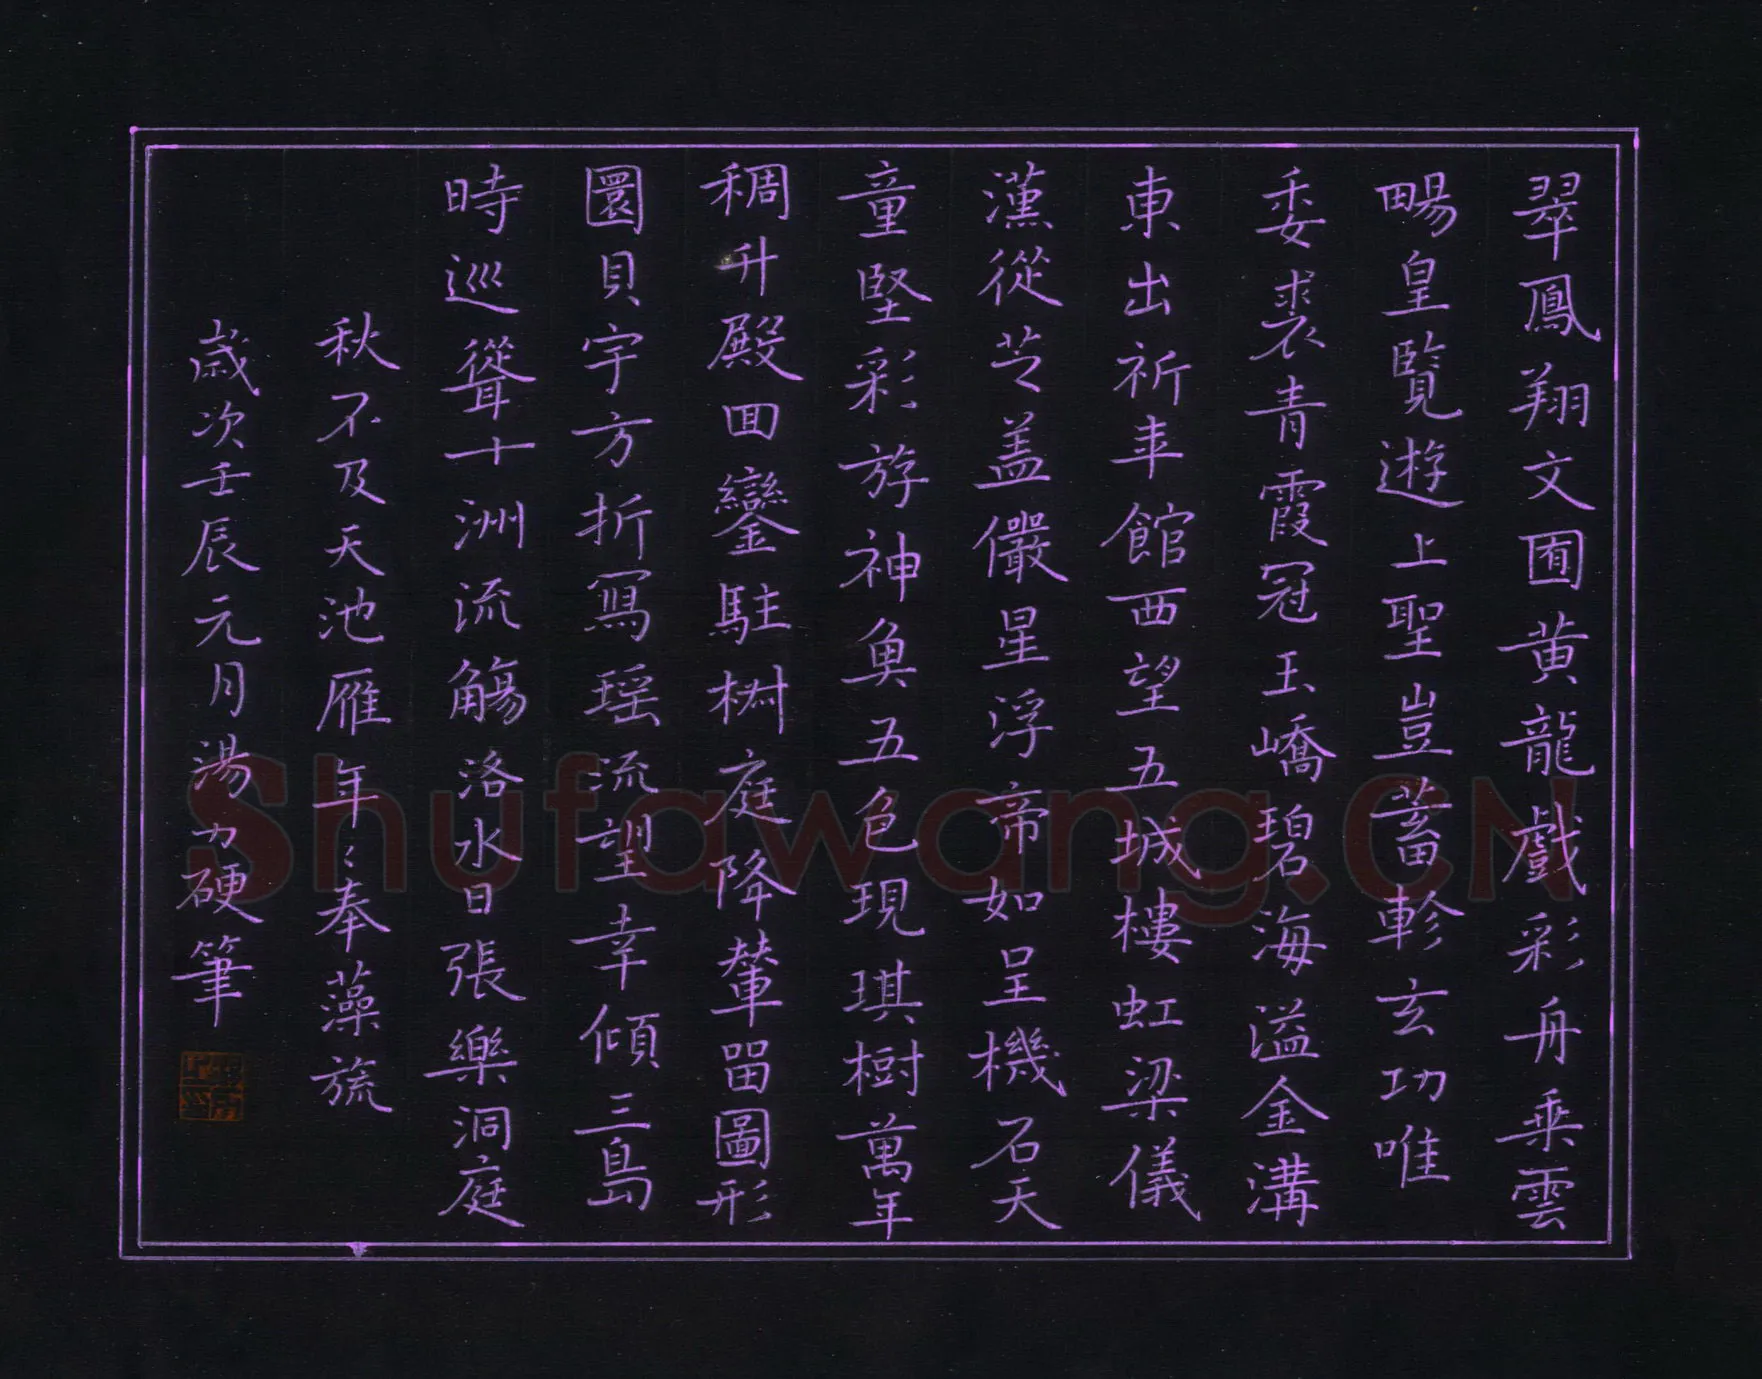 翠鳳翔文囿黄龍戲彩舟乗雲
畼皇覽遊上聖豈蓄軫玄功唯
委裘青霞冠玉嶠碧海溢金溝
東出祈年館西望五城樓虹梁儀
漢從芝盖儼星浮帝如呈機石天
童堅彩斿神魚五色現琪樹萬年
稠升殿回鑾駐樹庭降輦留圖形
圜貝宇方折冩瑶流望幸傾三島
時巡聳十洲流觴洛水日張樂洞庭
秋不及天池雁年〻奉藻旒
歳次壬辰元月湯力硬筆
Shufawang.CN